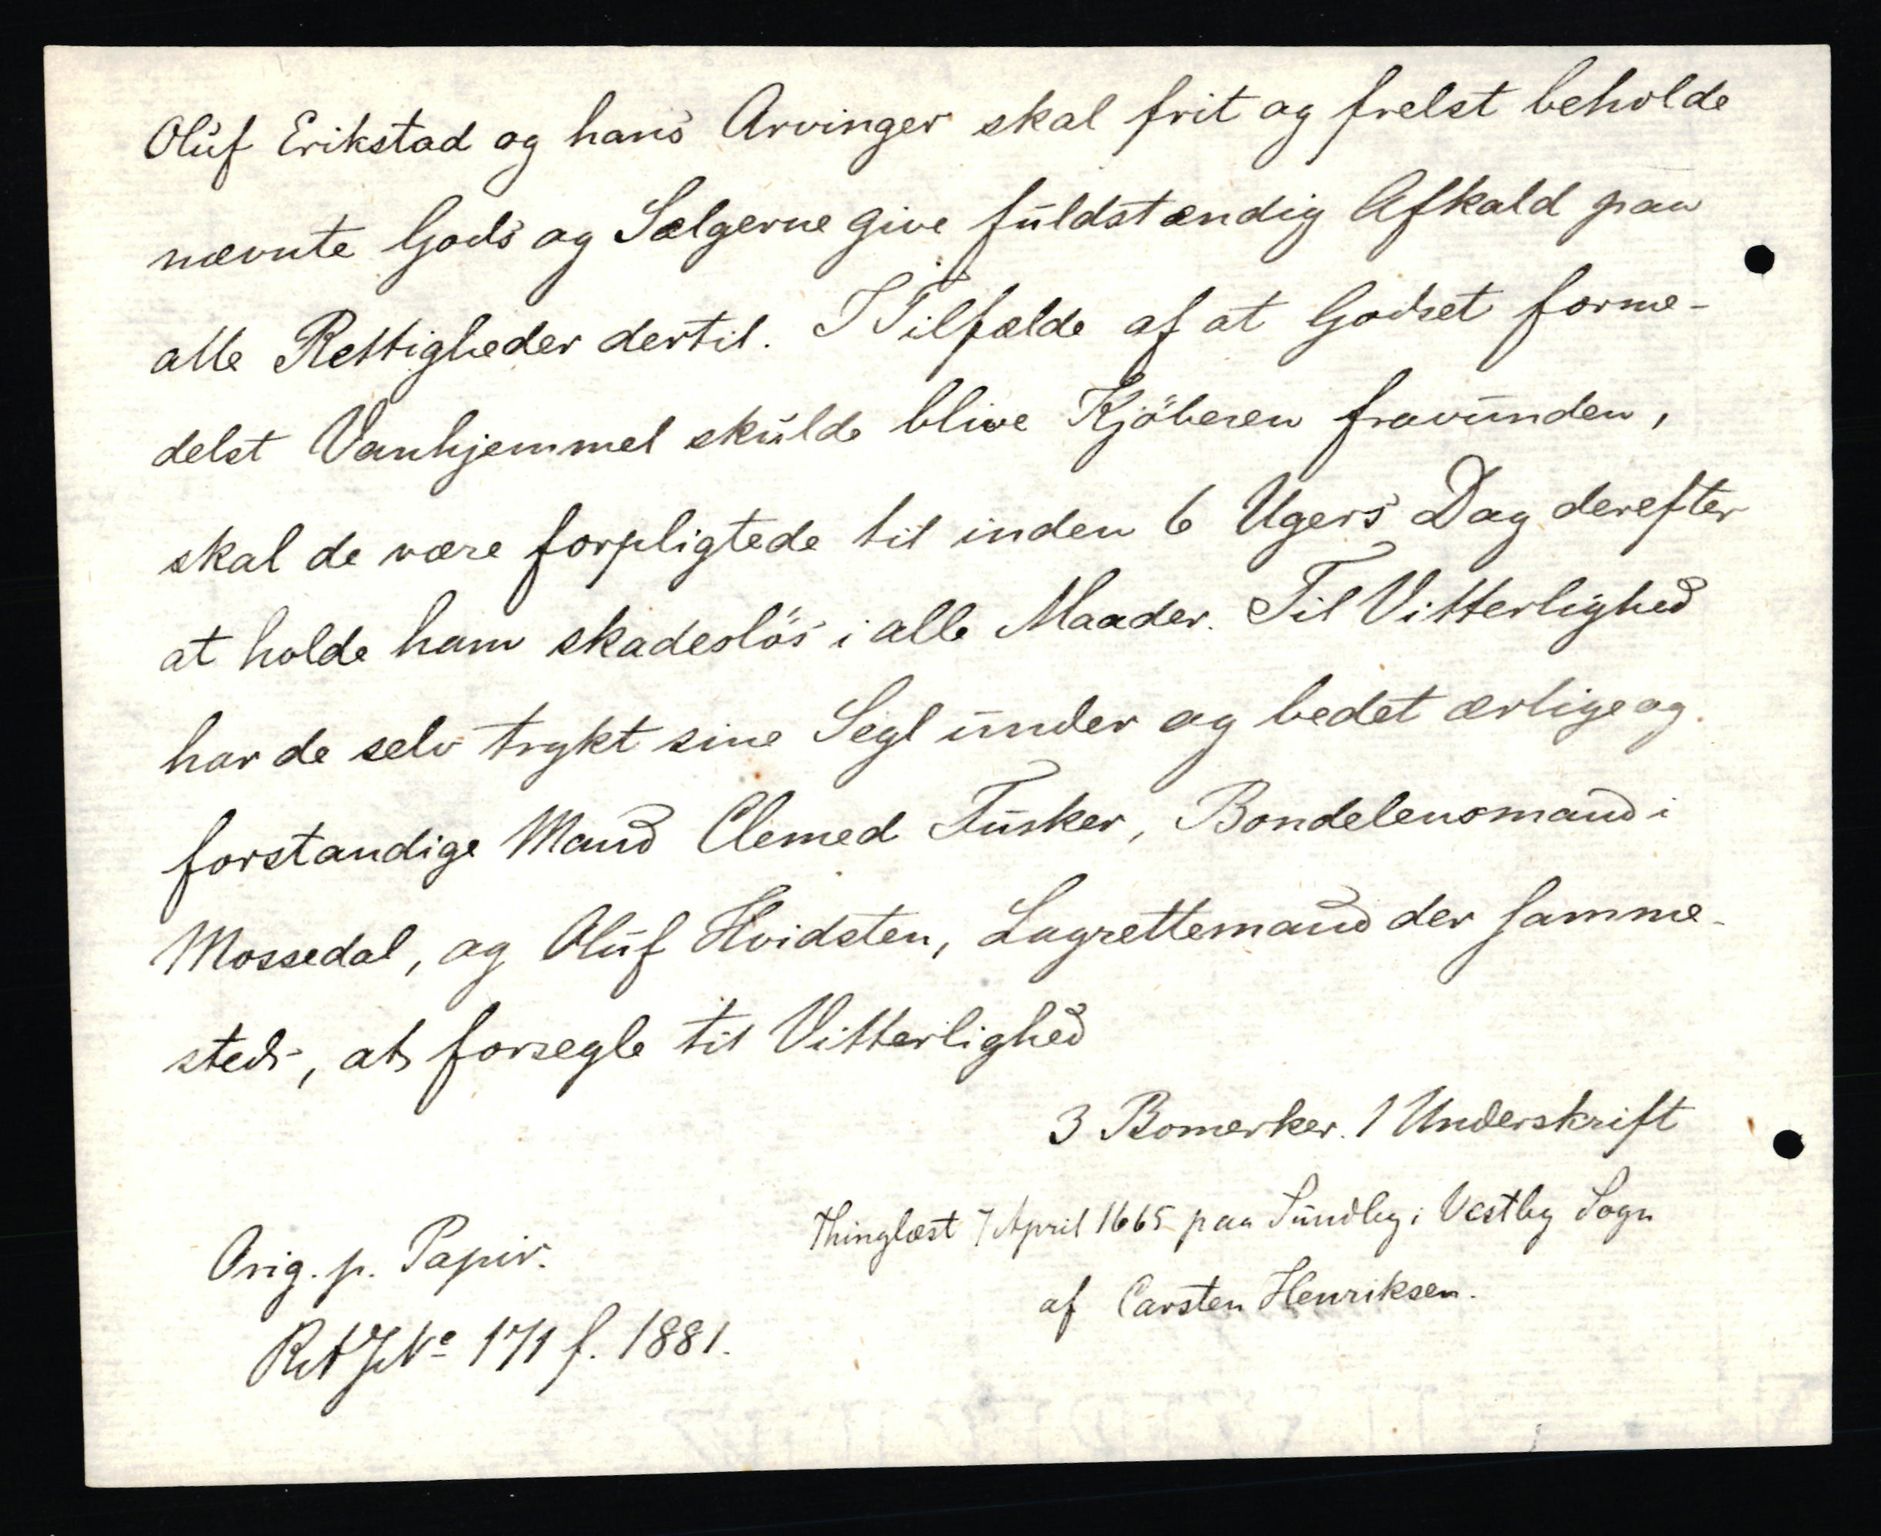 Oluf Erikstad og hans Arvinger skal frit og frelst beholde
nævnte Gods og Sælgerne give fuldstændig Afkald paa
alle Rettigheder dertil. I Tilfælde af at Godset forme-
delst Vanhjemmel skulde blive Kjöberen fravunden,
skal de være forpligtede til inden 6 Ugers Dag derefter
at holde ham skadeslös i alle Maader. Til Vitterlighed
har de selv trykt sine Segl under og bedet ærlige og
forstandige Mand Clemed Fusker, Bondelensmand i
Mossedal, og Oluf Hvidsten, Lagrettemand der samme-
steds, at forsegle til Vitterlighed
3 Bomerker. 1 Underskrift
Thinglæst 7 April 1665 paa Sundby i Vestby Sogn
af Carsten Henriksen.
Orig. p. Papir.
RA JNo 171 f. 1881.